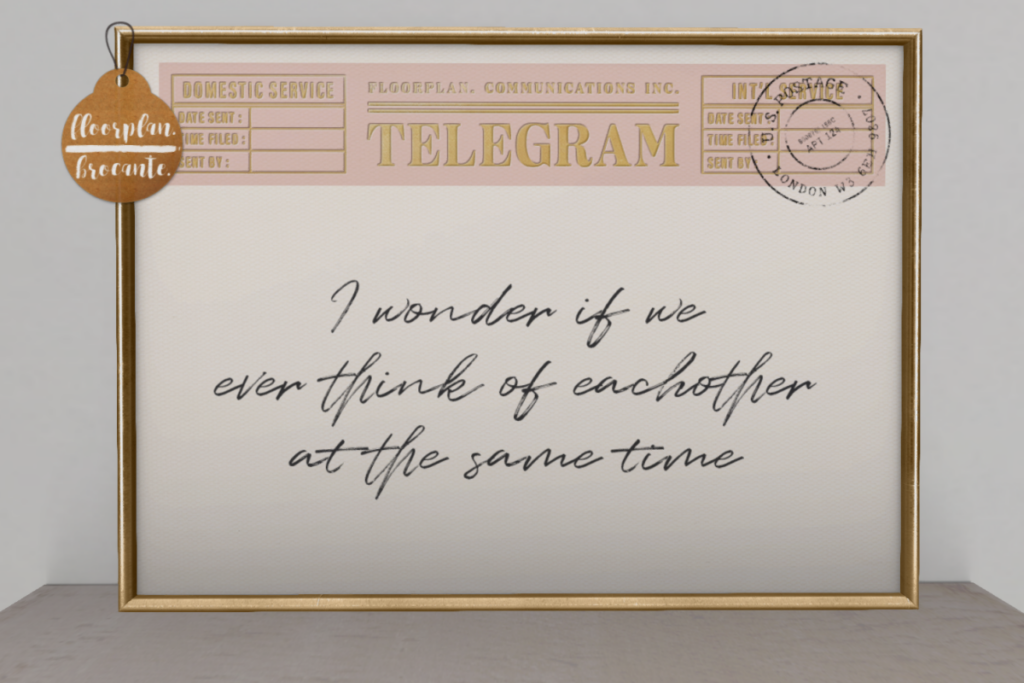 floorplan.
brocante.
DOMESTIC SERVICE
DATE SENT :
TIME FILED :
SENT BY :
FLOORPLAN. COMMUNICATIONS INC.
TELEGRAM
INT'L SERVICE
DATE SENT
TIME FILED :
SENT BY
U.S. POSTAGE
APT 126
LONDON W3 6EH
I wonder if we
ever think of eachother
at the same time